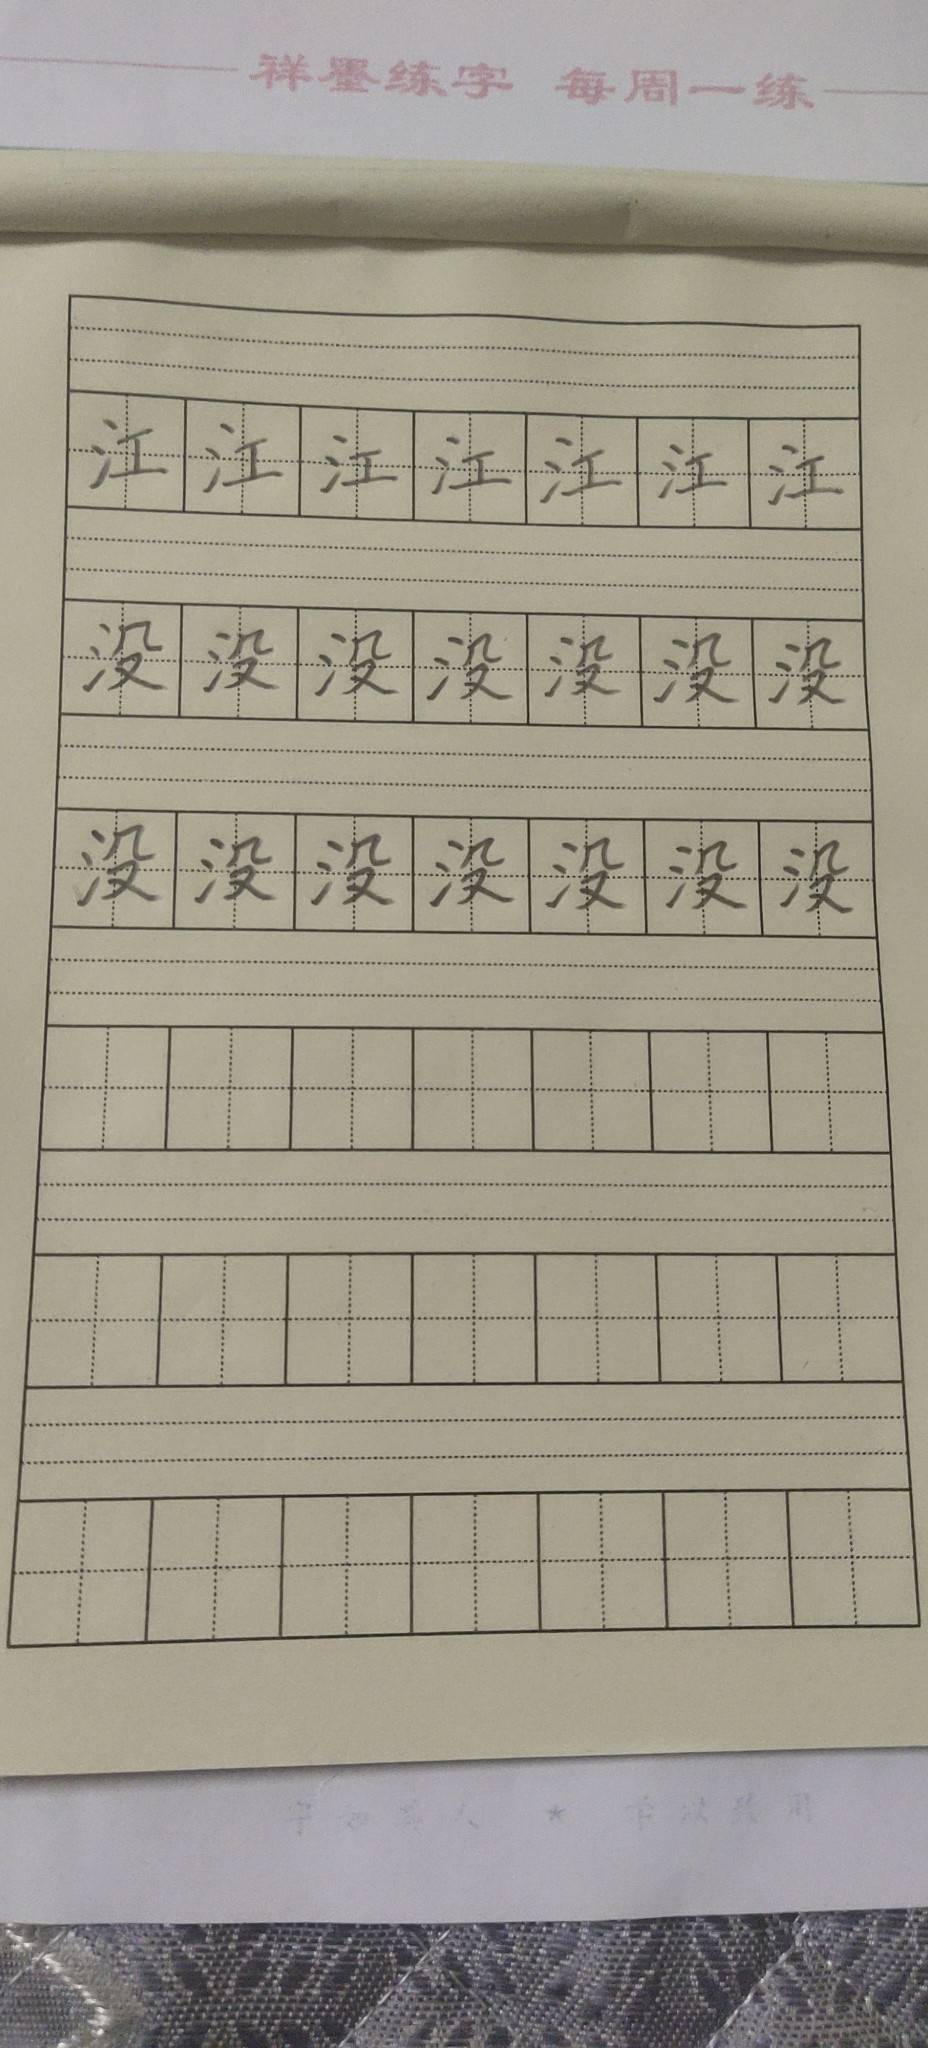 祥墨练字 每周一练
江江江江江江江
没没没没没没没
没没没没没没没